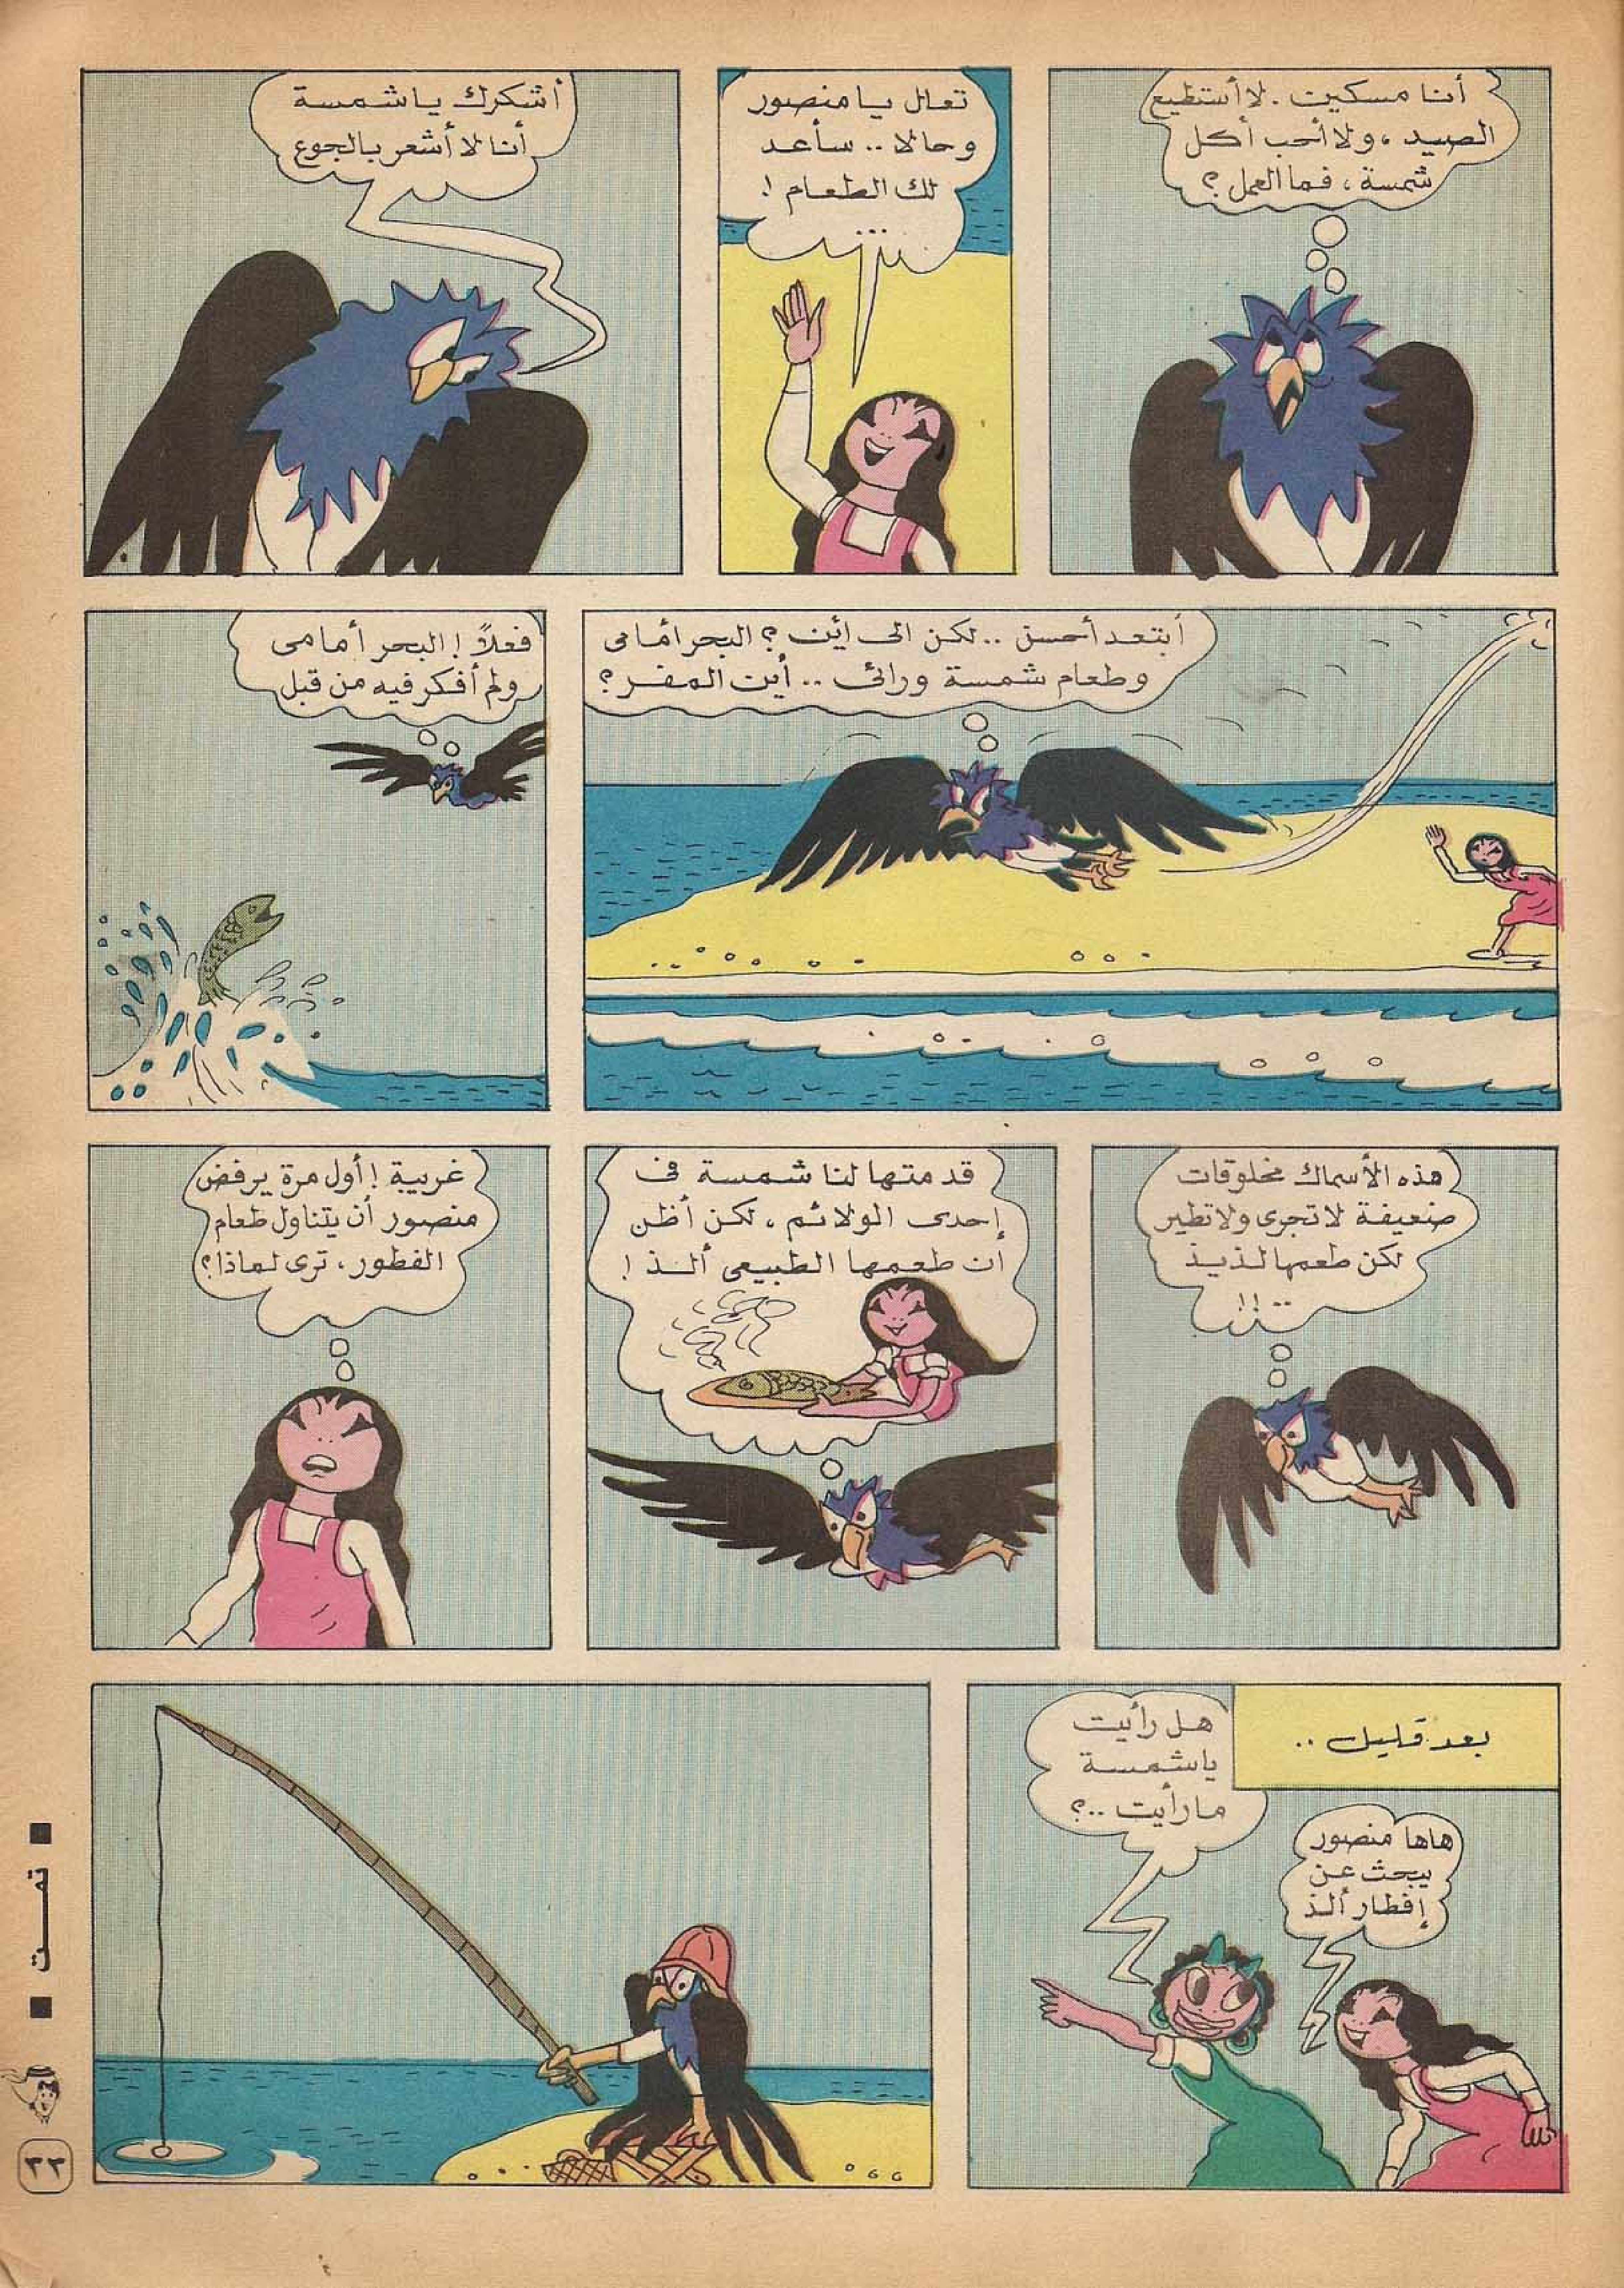 أنا مسكين. لا أستطيع
الصيد، ولا أحب أكل
شمسة، فما العمل؟
تعال يا منصور
وحالا.. سأعد
لك الطعام!
أشكرك يا شمسة
أنا لا أشعر بالجوع
ابتعد أحسن.. لكن الى أين؟ البحر أمامى
وطعام شمسة ورائى.. أين المفر؟
فعلاً! البحر أمامى
ولم أفكر فيه من قبل
هذه الأسماك مخلوقات
ضعيفة لا تجرى ولا تطير
لكن طعمها لذيذ
..!!
قدمتها لنا شمسة فى
إحدى الولائم، لكن أظن
ان طعمها الطبيعى ألذ!
غريبة! أول مرة يرفض
منصور أن يتناول طعام
الفطور، ترى لماذا؟
بعد قليل..
هاها منصور
يبحث عن
إفطار ألذ
هل رأيت
ياشمسة
مارأيت..؟
تمت
٣٢